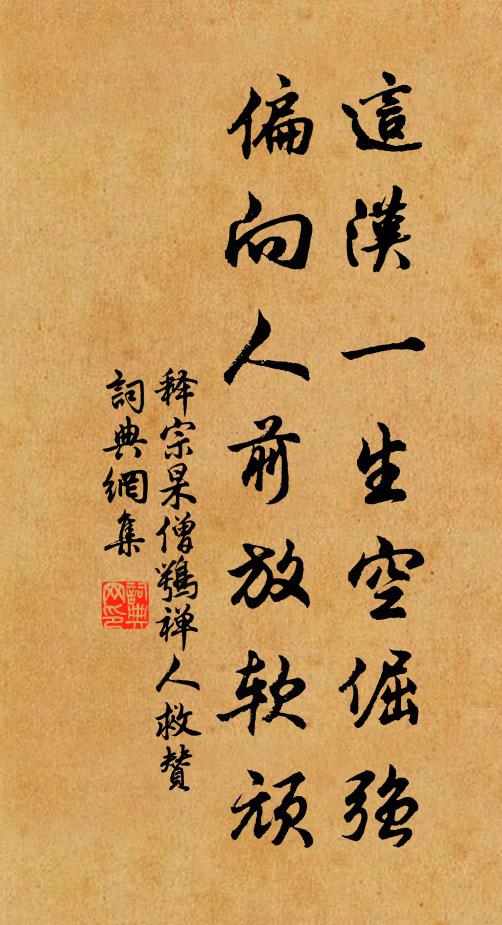 這漢一生空倔強
偏向人前放軟頑
释宗杲僧鶚禅人救賛
詞典網集
詞典网印